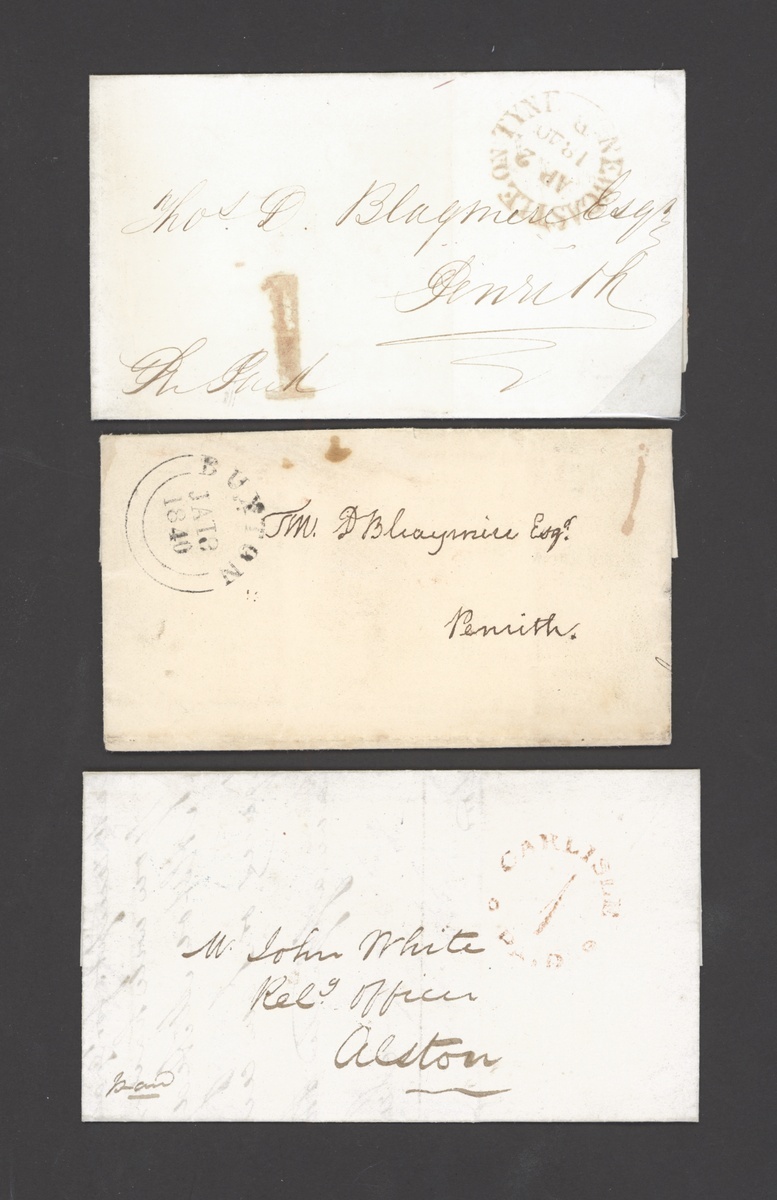 NEWCASTLE ON TYNE
AP 2
1840
Thos. D. Blaymire Esqr
Penrith
1
Paid
BUXTON
JA 18
1840
Thos. D Blaymire Esqr.
Penrith.
CARLISLE
Mr. John White
Relg Officer
Alston
paid